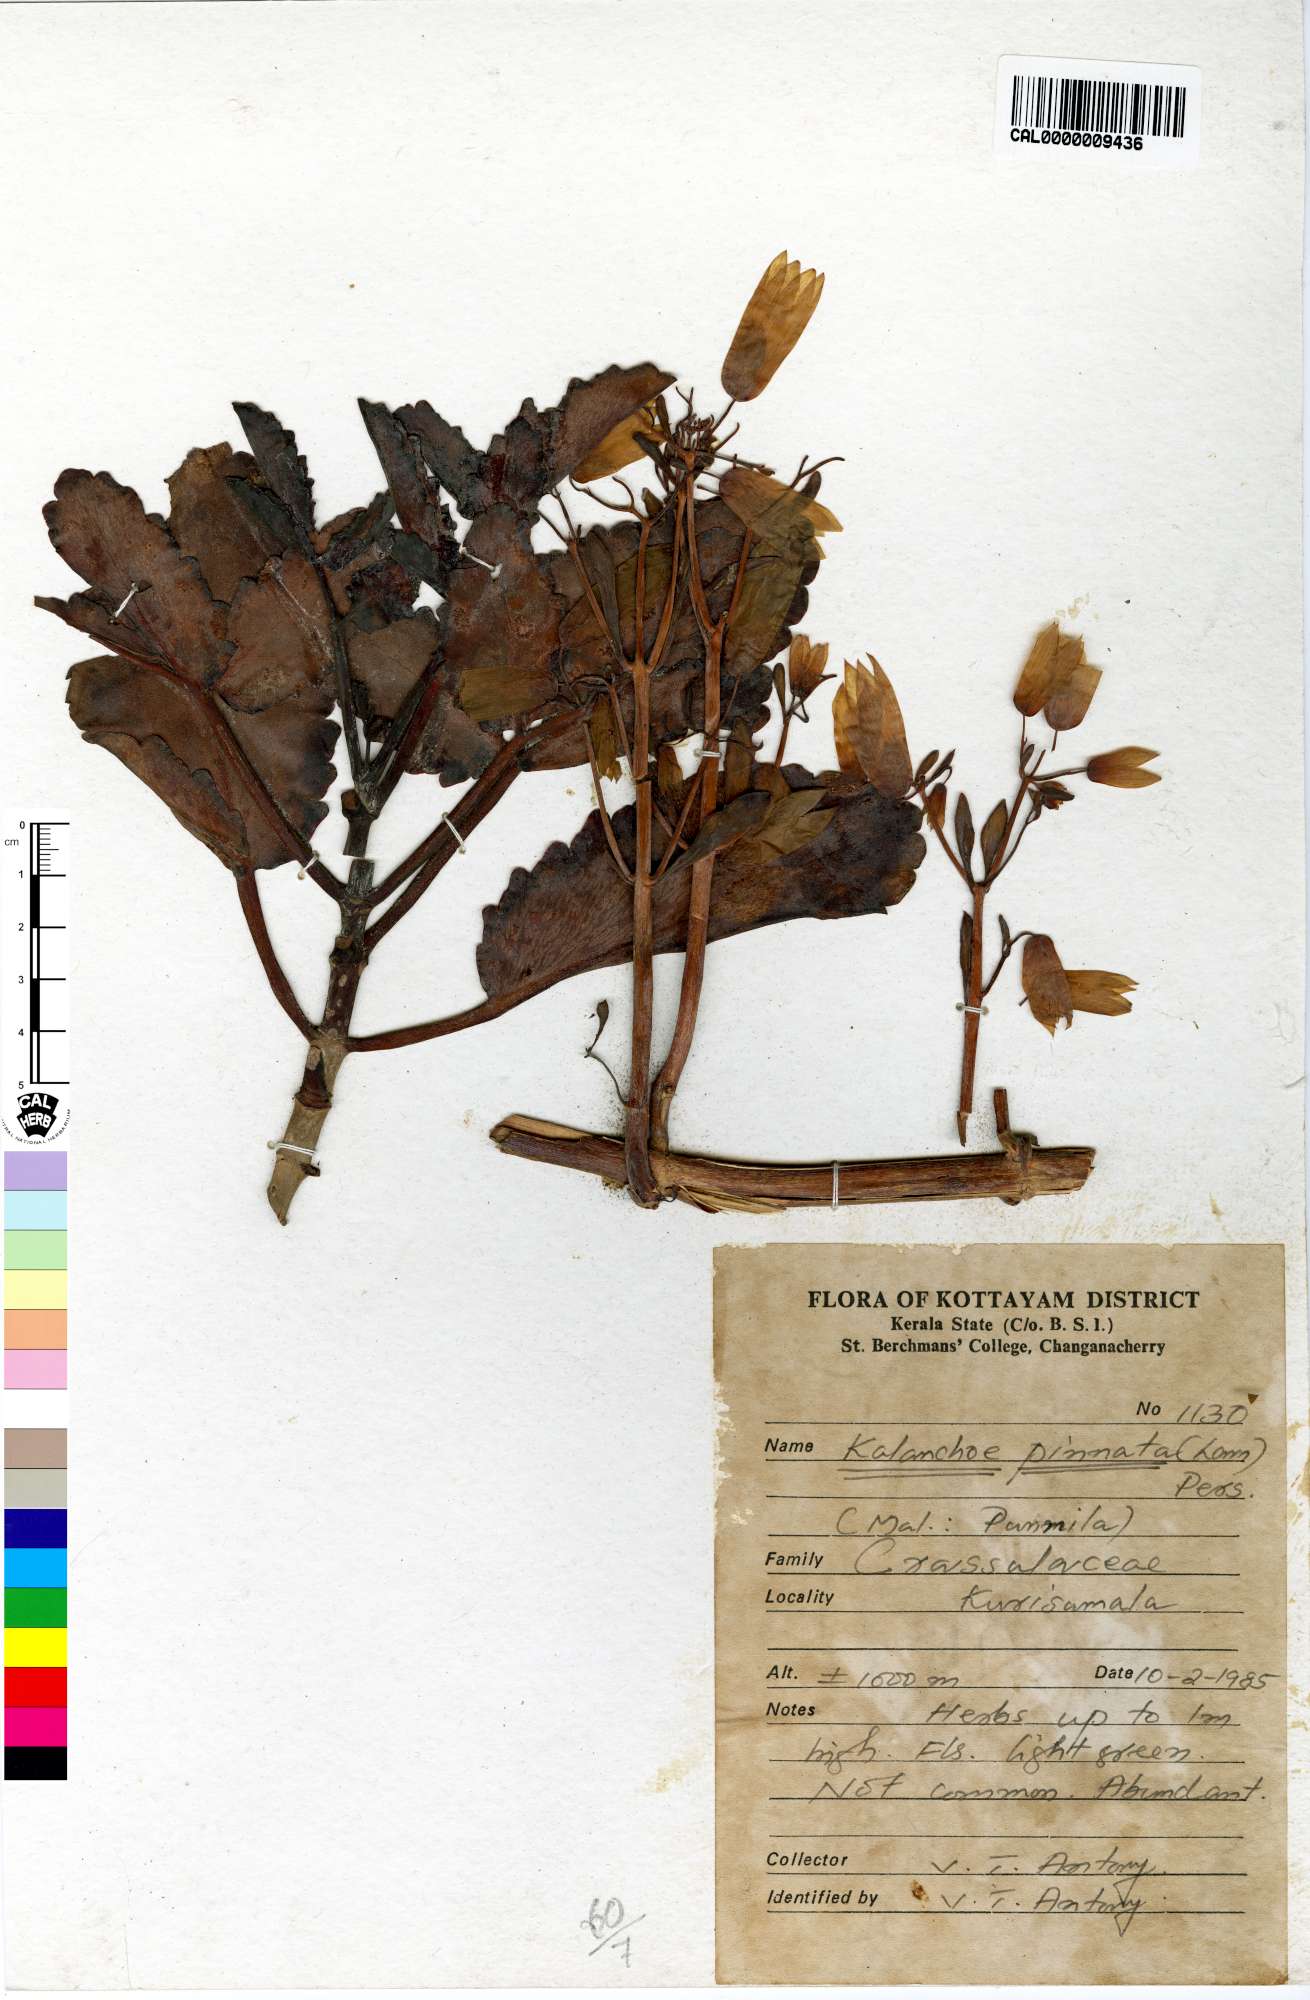 CAL0000009436
0
cm
1
2
3
4
5
CAL
HERB
FLORA OF KOTTAYAM DISTRICT
Kerala State (C/o. B. S. I.)
St. Berchmans' College, Changanacherry
No 1130
Name Kalanchoe pinnata (Lam)
Pers.
(Mal.: Punnila)
Family Crassulaceae
Locality Kurisumala
Alt. ± 1000 m Date 10-2-1985
Notes Herbs up to 1m
high. Fls. light green.
Not common. Abundant.
Collector V. T. Antony.
Identified by V. T. Antony.
60/7